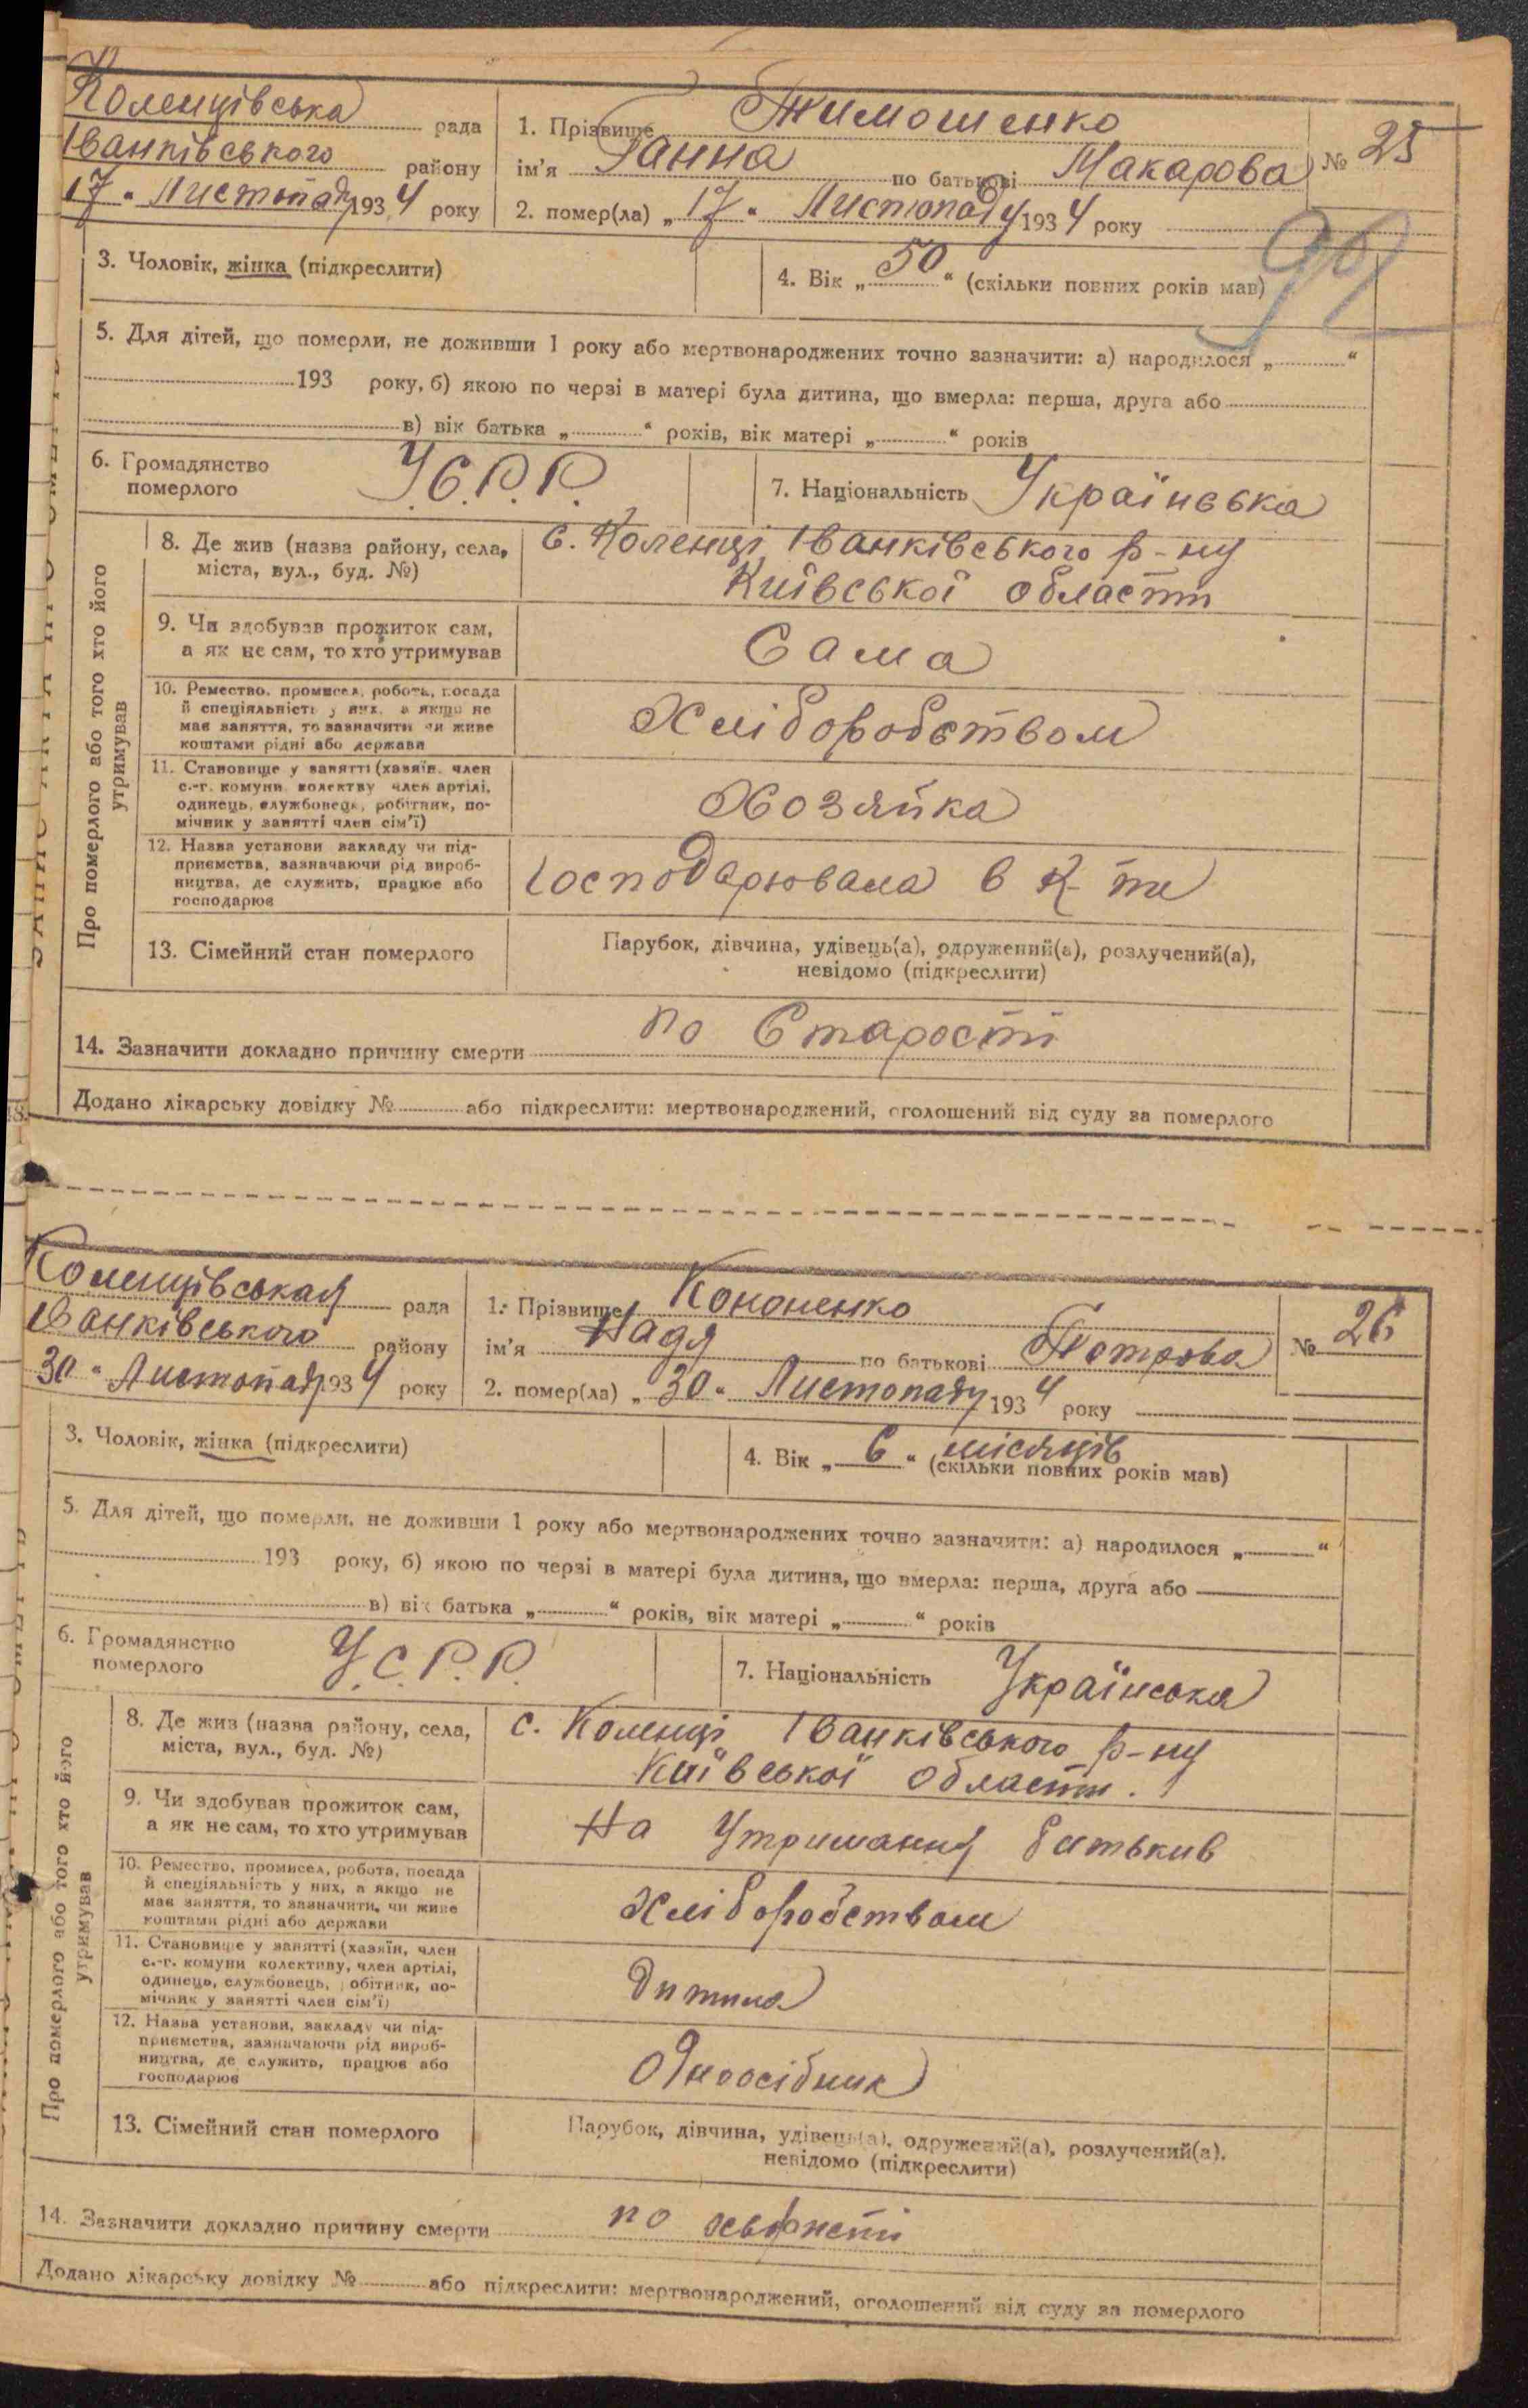 Коленцівська рада
Іванківського району
17 " Листопаду 1934 року
1. Прізвище Тимошенко
ім'я Ганна по батькові Макарова
№ 25
2. помер(ла) „ 17 " Листопаду 1934 року
3. Чоловік, жінка (підкреслити)
4. Вік „ 50 " (скільки повних років мав)
5. Для дітей, що померли, не доживши 1 року або мертвонароджених точно зазначити: а) народилося „ "
193 року, б) якою по черзі в матері була дитина, що вмерла: перша, друга або
в) вік батька „ " років, вік матері „ " років
6. Громадянство
померлого
У.С.Р.Р.
7. Національність Українська
Про померлого або того хто його
утримував
8. Де жив (назва району, села,
міста, вул., буд. №)
с. Коленці Іванківського р-ну
Київської области
9. Чи здобував прожиток сам,
а як не сам, то хто утримував
Сама
10. Ремество, промисел, робота, посада
й спеціяльність у них, а якщо не
має заняття, то зазначити чи живе
коштами рідні або держави
Хліборобством
11. Становище у занятті (хазяїн, член
с.-г. комуни колективу член артілі,
одинець, службовець, робітник, по-
мічник у занятті член сім'ї)
Хозяйка
12. Назва установи закладу чи під-
приємства, зазначаючи рід вироб-
ництва, де служить, працює або
господарює
Господарювала в К-ти
13. Сімейний стан померлого
Парубок, дівчина, удівець(а), одружений(а), розлучений(а),
невідомо (підкреслити)
14. Зазначити докладно причину смерти по Старости
Додано лікарську довідку № або підкреслити: мертвонароджений, оголошений від суду за померлого
Коленцівська рада
Іванківського району
30 " Листопаду 1934 року
1. Прізвище Кононенко
ім'я Надя по батькові Петрова
№ 26
2. помер(ла) „ 30 " Листопаду 1934 року
3. Чоловік, жінка (підкреслити)
4. Вік „ 6 " місяців (скільки повних років мав)
5. Для дітей, що померли, не доживши 1 року або мертвонароджених точно зазначити: а) народилося „ "
193 року, б) якою по черзі в матері була дитина, що вмерла: перша, друга або
в) вік батька „ " років, вік матері „ " років
6. Громадянство
померлого
У.С.Р.Р.
7. Національність Українська
Про померлого або того хто його
утримував
8. Де жив (назва району, села,
міста, вул., буд. №)
с. Коленці Іванківського р-ну
Київської области.
9. Чи здобував прожиток сам,
а як не сам, то хто утримував
На утримання батьків
10. Ремество, промисел, робота, посада
й спеціяльність у них, а якщо не
має заняття, то зазначити, чи живе
коштами рідні або держави
Хліборобством
11. Становище у занятті (хазяїн, член
с.-г. комуни колективу, член артілі,
одинець, службовець, робітник, по-
мічник у занятті член сім'ї)
Дитина
12. Назва установи, закладу чи під-
приємства, зазначаючи рід вироб-
ництва, де служить, працює або
господарює
Одноосібник
13. Сімейний стан померлого
Парубок, дівчина, удівець(а), одружений(а), розлучений(а),
невідомо (підкреслити)
14. Зазначити докладно причину смерти по
Додано лікарську довідку № або підкреслити: мертвонароджений, оголошений від суду за померлого